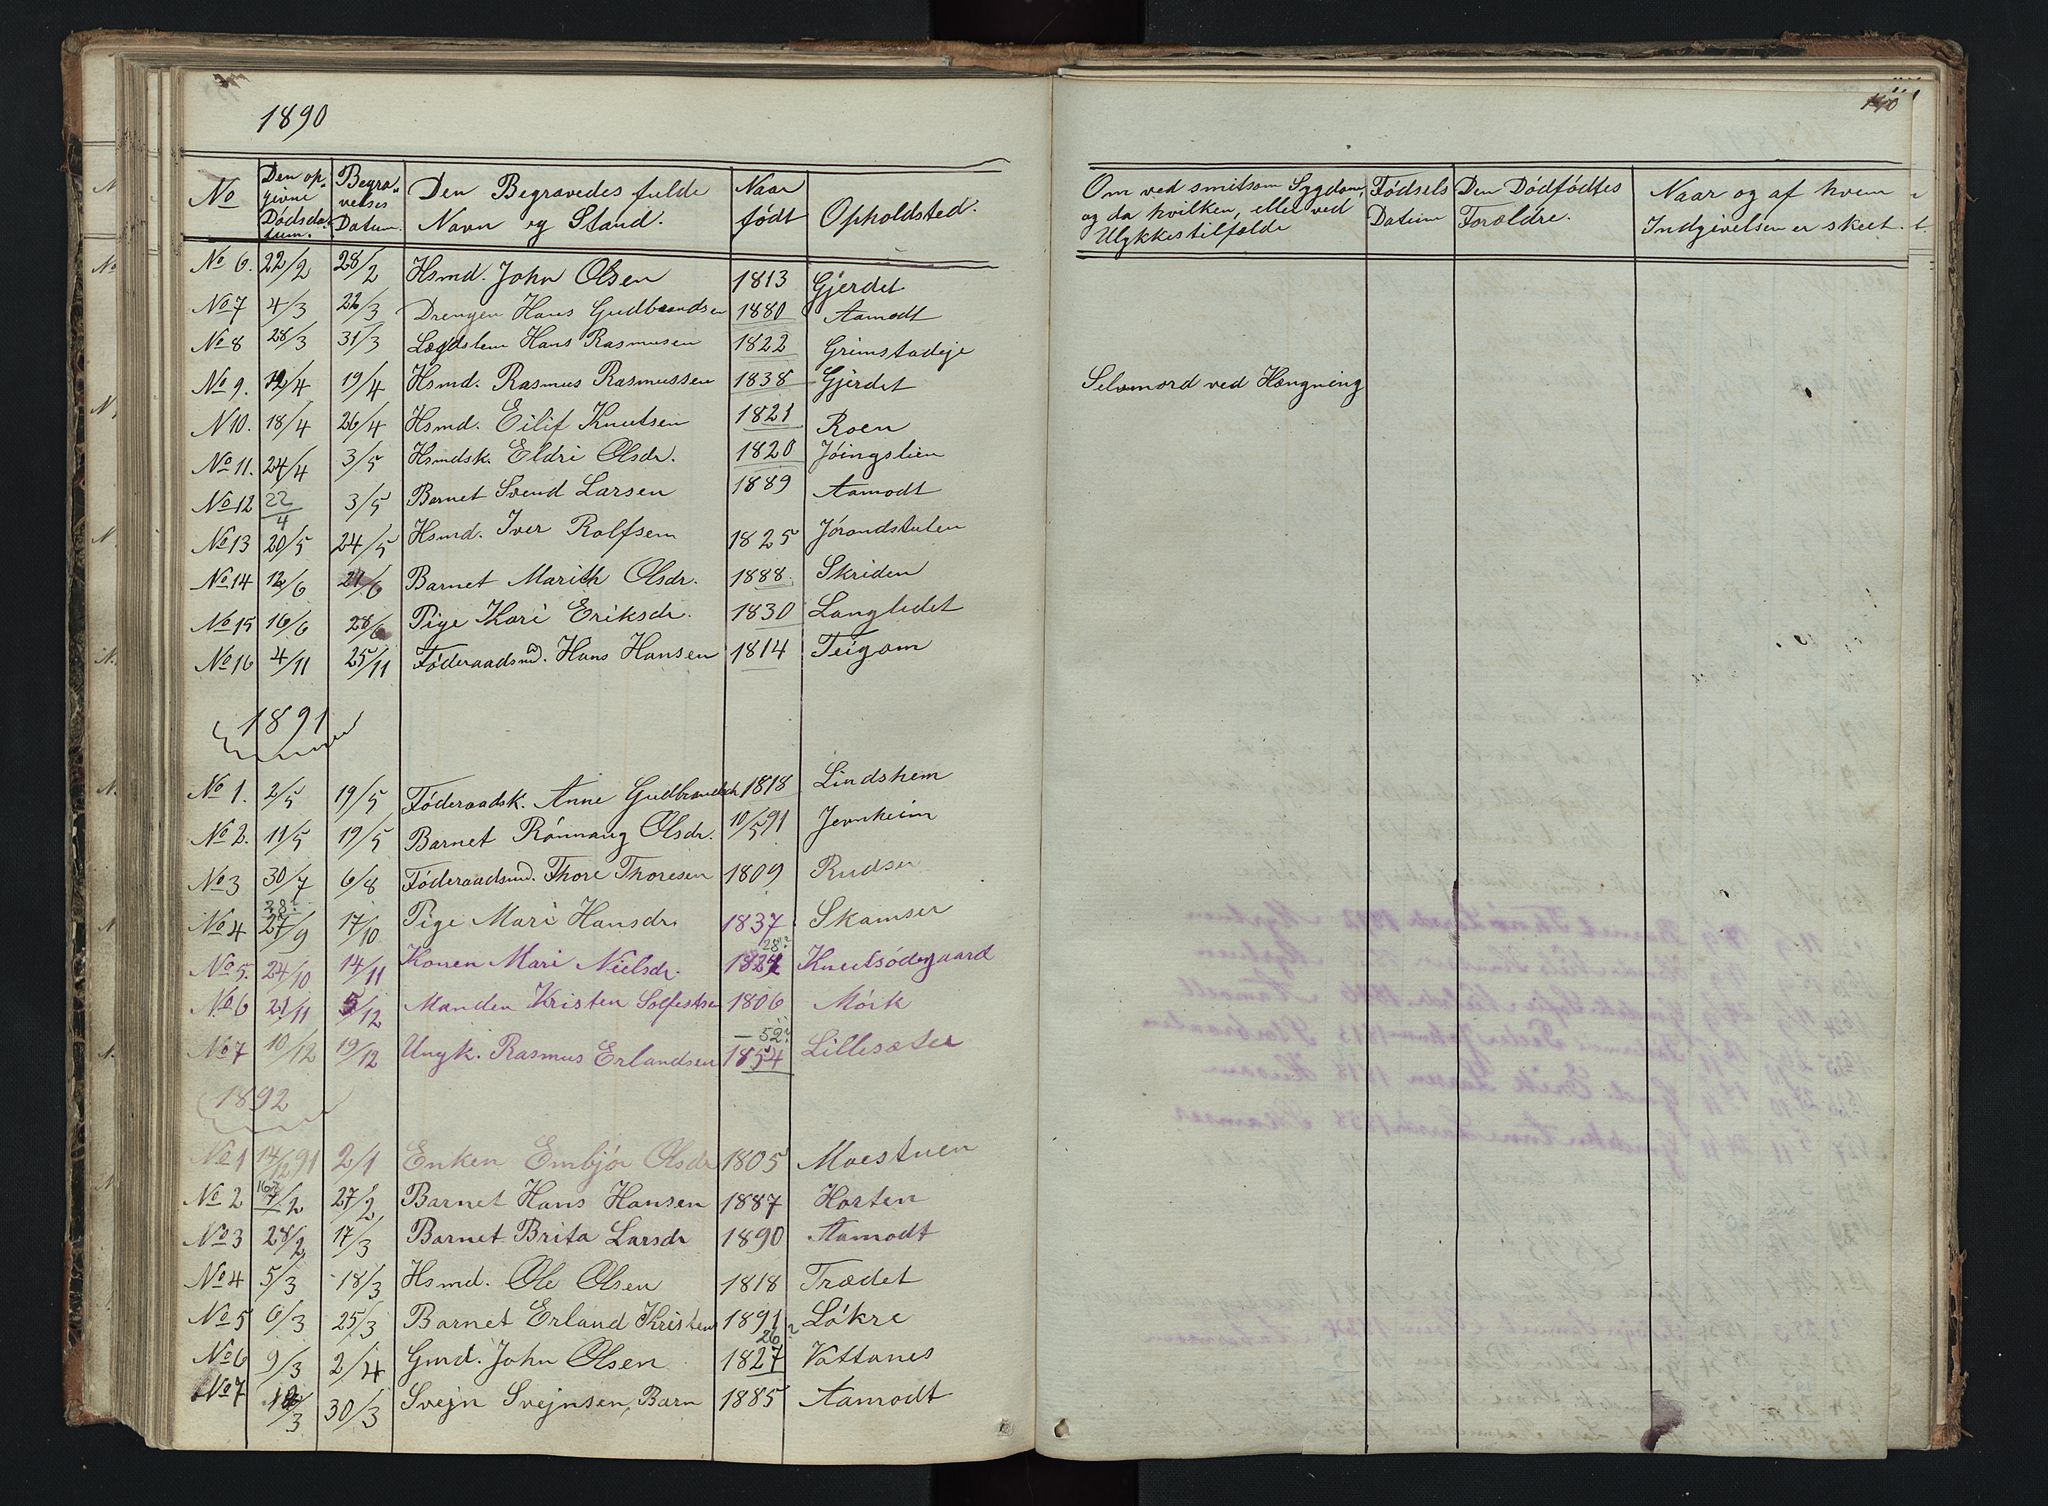 1890
No | Den opgivne Dødsdatum. | Begravelses Datum. | Den Begravedes fulde Navn og Stand. | Naar født | Opholdsted.
No 6. 22/2 28/2 Hsmd. John Olsen 1813 Gjerdet
No 7 4/3 22/3 Drengen Hans Gudbrandsen 1880 Aamodt
No 8 28/3 31/3 Lægdslem Hans Rasmusen 1822 Grimstadeje
No 9. 12/4 19/4 Hsmd. Rasmus Rasmussen 1838 Gjerdet
N 10. 18/4 26/4 Hsmd. Eilif Knutsen 1821 Roen
No 11. 24/4 3/5 Hsmdsk. Eldri Olsdr. 1820 Jøingslien
No 12 22/4 3/5 Barnet Svend Larsen 1889 Aamodt
No 13 20/5 24/5 Hsmd. Iver Rolfsen 1825 Jørandstulen
No 14 12/6 21/6 Barnet Marith Olsdr. 1888. Skriden
No 15 16/6 28/6 Pige Kari Eriksdr. 1830 Langledet
No 16 4/11 25/11 Føderaadsmd. Hans Hansen 1814 Teigom
1891
No 1. 2/5 19/5 Føderaadsk. Anne Gudbrandsd 1818 Lindshem
No 2. 11/5 19/5 Barnet Rønnaug Olsdr. 10/5 91 Jernheim
No 3 30/7 6/8 Føderaadsmd. Thore Thoresen 1809 Rudser
28?
No 4 27/9 17/10 Pige Mari Hansdr 1837 Skamser
28?
No 5. 24/10 14/11 Konen Mari Nielsdr. 1824 Knutsødegaard
No 6 21/11 5/12 Manden Kristen Solfestsen 1806 Mørk
52?
No 7 10/12 19/12 Ungk. Rasmus Erlandsen 1854 Lillesæter
1892
No 1 14/12 91 2/1 Enken Embjør Olsdr 1805 Moestuen
No 2 7/2 27/2 Barnet Hans Hansen 1887 Horten
No 3 28/2 17/3 Barnet Brita Larsdr 1890 Aamodt
No 4 5/3 18/3 Hsmd. Ole Olsen 1818 Trædet
No 5 6/3 25/3 Barnet Erland Kristens 1891 Løkre
26?
No 6 9/3 2/4 Gmd. John Olsen 1827 Vattanes
No 7 30/3 Svejn Svejnsen, Barn 1885 Aamodt
110
Om ved smitsom Sygdom, og da hvilken, eller ved Ulykkestilfælde | Fødsels Datum | Den Dødfødtes Forældre. | Naar og af hvem Indgivelsen er skeet.
Selvmord ved Hængning